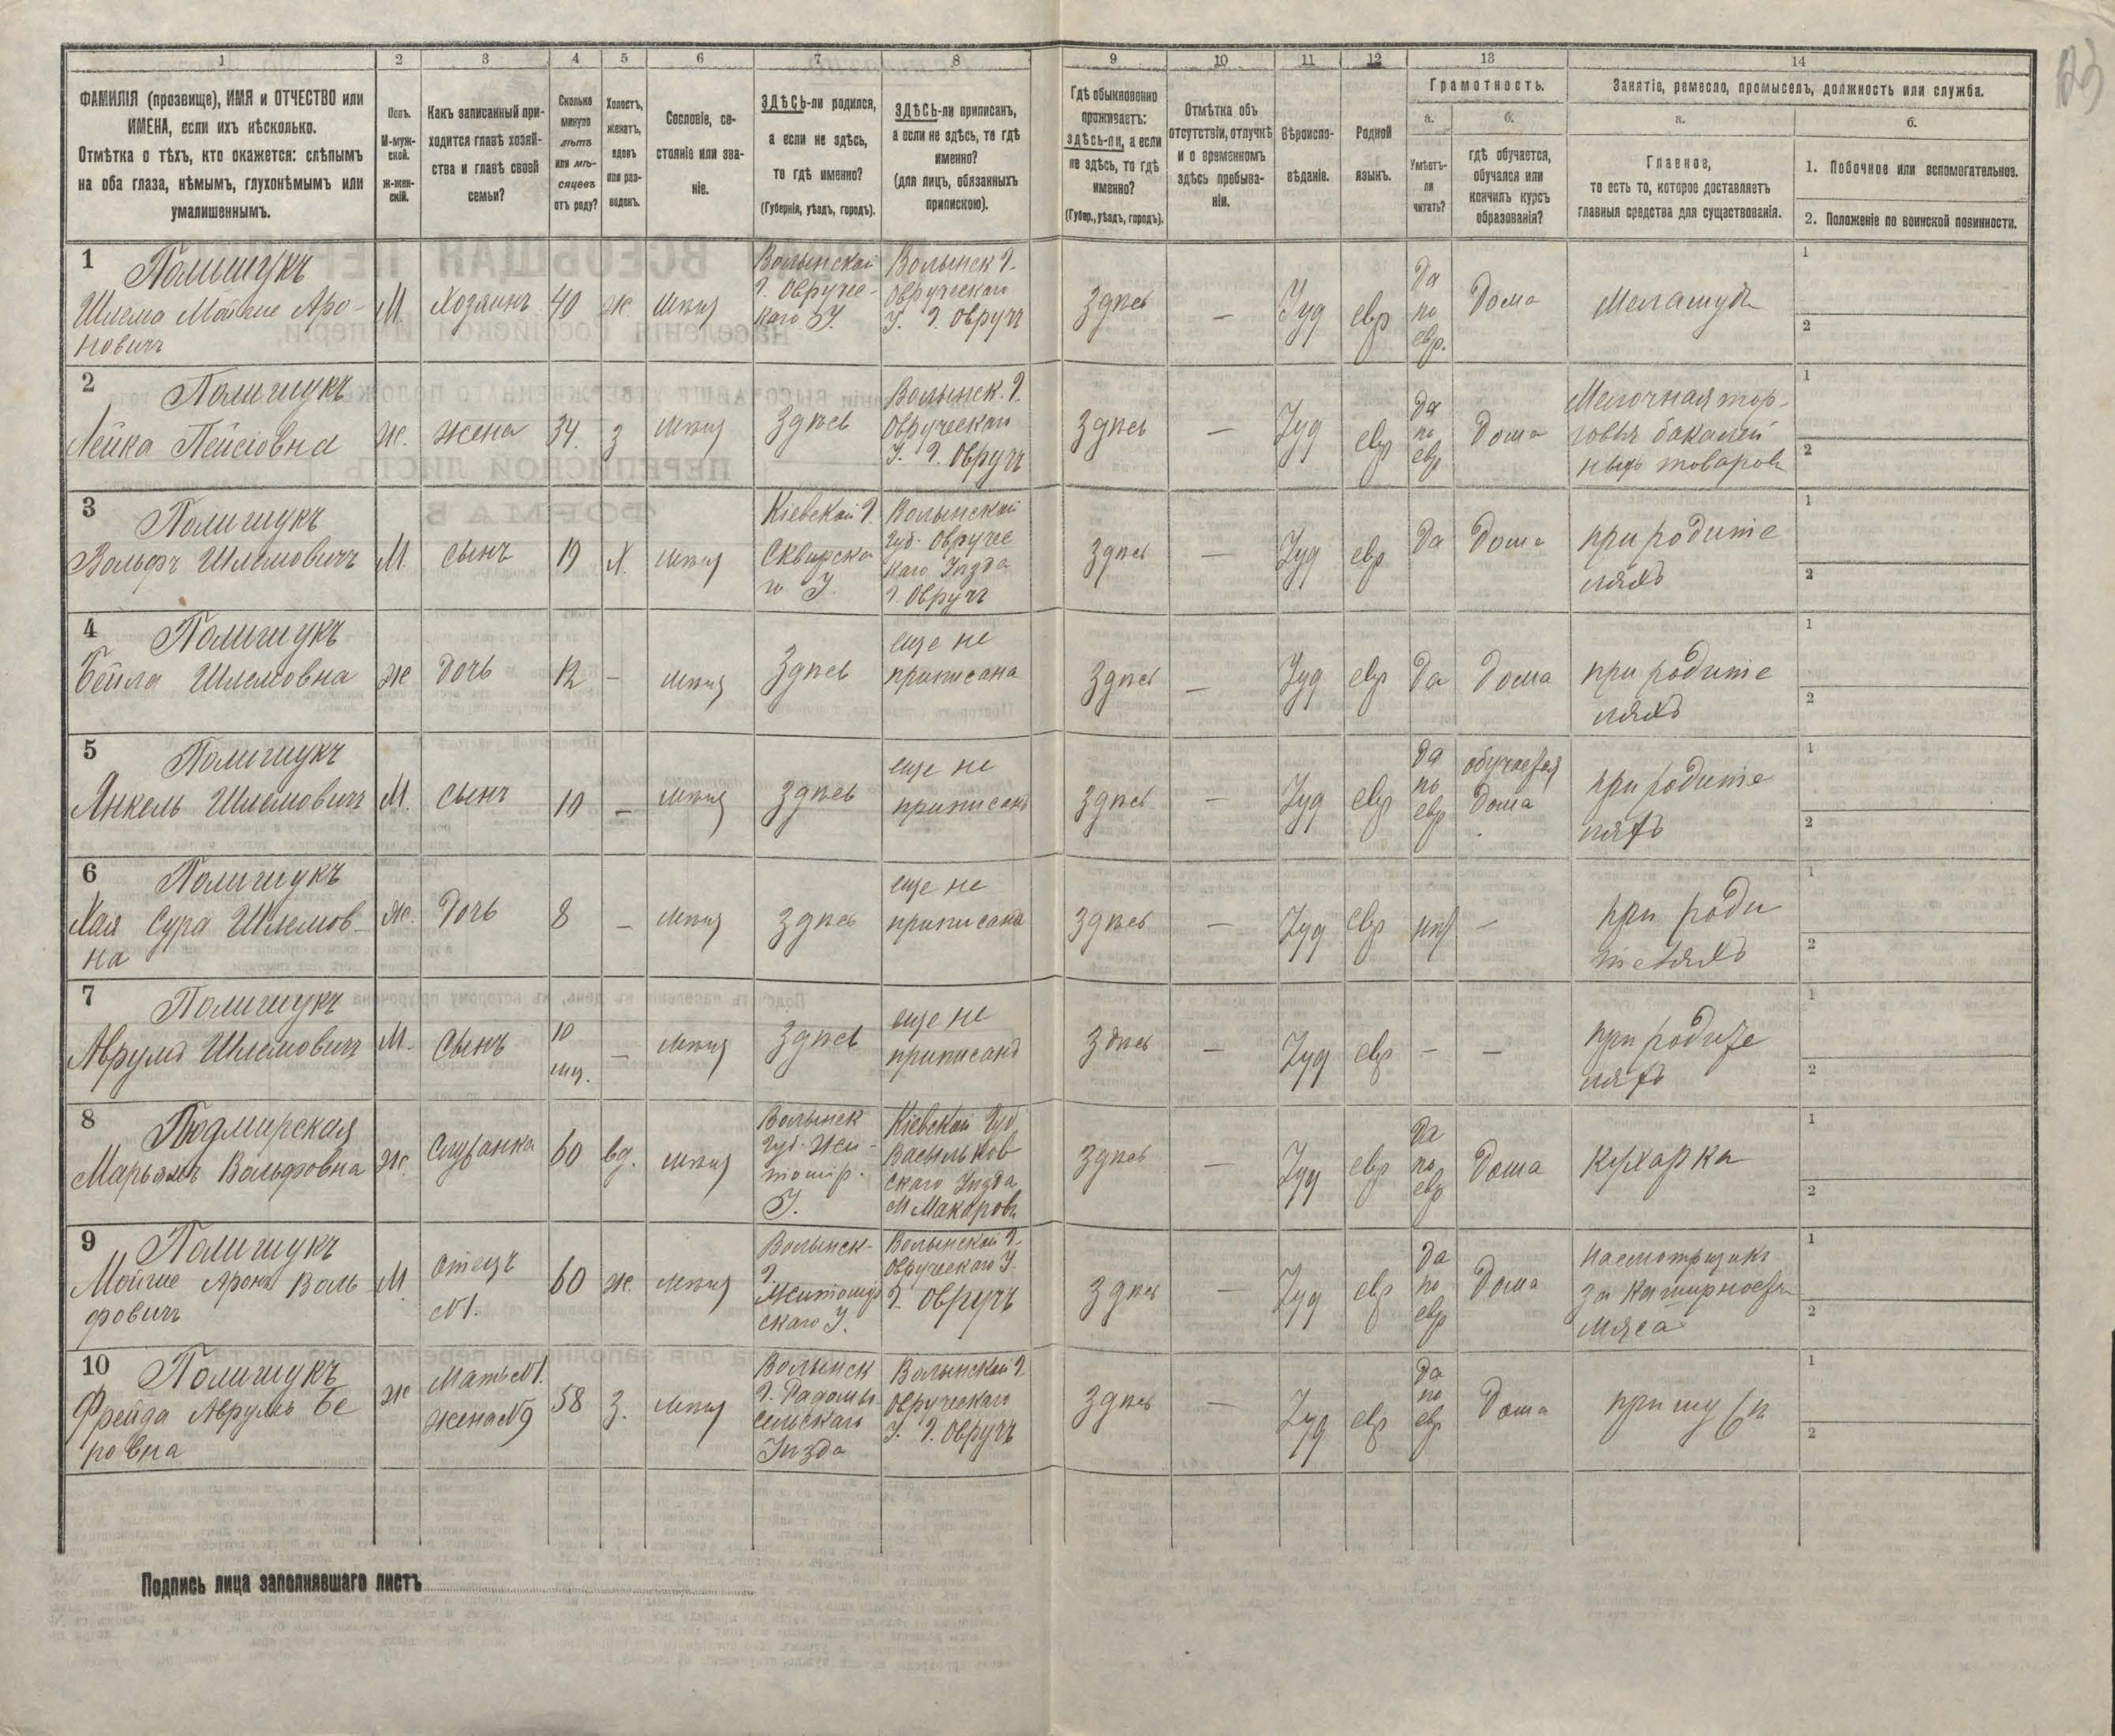 1 2 3 4 5 6 7 8 9 10 11 12 13 14
ФАМИЛІЯ (прозвище), ИМЯ и ОТЧЕСТВО или
ИМЕНА, если ихъ нѣсколько.
Отмѣтка о тѣхъ, кто окажется: слѣпымъ
на оба глаза, нѣмымъ, глухонѣмымъ или
умалишеннымъ.
Полъ.
М-муж-
ской.
Ж-жен-
скій.
Какъ записанный при-
ходится главѣ хозяй-
ства и главѣ своей
семьи?
Сколько
минуло
лѣтъ
или мѣ-
сяцевъ
отъ роду?
Холостъ,
женатъ,
вдовъ
или раз-
веденъ.
Сословіе, со-
стояніе или зва-
ніе.
ЗДѢСЬ-ли родился,
а если не здѣсь,
то гдѣ именно?
(Губернія, уѣздъ, городъ).
ЗДѢСЬ-ли приписанъ,
а если не здѣсь, то гдѣ
именно?
(для лицъ, обязанныхъ
припискою).
Гдѣ обыкновенно
проживаетъ:
здѣсь-ли, а если
не здѣсь, то гдѣ
именно?
(Губер., уѣздъ, городъ).
Отмѣтка объ
отсутствіи, отлучкѣ
и о временномъ
здѣсь пребыва-
ніи.
Вѣроиспо-
вѣданіе.
Родной
языкъ.
Грамотность.
а.
Умѣетъ-
ли
читать?
б.
гдѣ обучается,
обучался или
кончилъ курсъ
образованія?
Занятіе, ремесло, промыселъ, должность или служба.
а.
Главное,
то есть то, которое доставляетъ
главныя средства для существованія.
б.
1. Побочное или вспомогательное.
2. Положеніе по воинской повинности.
1 Полищукъ
Шлема Мойше Аро-
новичъ
М.
Хозяинъ
40
ж.
Мѣщ
Волынской
Г. Овруче-
каго У.
Волынск Г.
Овручскаго
У. Г. Овручъ
Здѣсь
—
Іуд
евр
Да
по
евр.
Дома
Меламудъ
1
2
2 Полищукъ
Лейка Пейсіовна
Ж.
жена
34
З
мѣщ
Здѣсь
Волынск. Г.
Овручскаго
У. Г. Овручъ
Здѣсь
—
Іуд
евр
Да
по
евр
Дома
Мелочная тор-
говля бакалей
ныхъ товаровъ
1
2
3 Полищукъ
Вольфъ Шлемовичъ
М.
сынъ
19
Х.
мѣщ
Кіевской Г.
Сквирска
го У.
Волынской
Губ. Овруче
каго Уѣзда
Г. Овручъ
Здѣсь
—
Іуд
евр
Да
Дома
при родите
ляхъ
1
2
4 Полищукъ
Бейла Шлемовна
Ж
Дочь
12
—
мѣщ
Здѣсь
еще не
приписана
Здѣсь
—
Іуд
евр
Да
Дома
при родите
ляхъ
1
2
5 Полищукъ
Янкель Шлемовичъ
М.
сынъ
10
—
мѣщ
Здѣсь
еще не
приписанъ
Здѣсь
—
Іуд
евр
Да
по
евр
обучается
Дома
при родите
ляхъ
1
2
6 Полищукъ
Хая Сура Шлемов-
на
Ж.
Дочь
8
—
мѣщ
Здѣсь
еще не
приписана
Здѣсь
—
Іуд
евр
—
при роди
теляхъ
1
2
7 Полищукъ
Аврумъ Шлемовичъ
М.
Сынъ
10
мц.
—
мѣщ
Здѣсь
еще не
приписанъ
Здѣсь
—
Іуд
евр
—
—
при родите
ляхъ
1
2
8
Марьямъ Вольфовна
Ж.
Служанка
60
вд.
мѣщ
Волынск
Губ. Жи-
томір.
У.
Кіевской Губ
Васильков
скаго Уѣзда
М Макаровъ
Здѣсь
—
Іуд
евр
Да
по
евр
Дома
Кухарка
1
2
9 Полищукъ
Мойше Аронъ Воль
фовичъ
М
отецъ
№1.
60
ж.
мѣщ
Волынск-
Г.
Житомир
скаго У.
Волынской Г.
Овручскаго У.
Г. Овручъ
Здѣсь
—
Іуд
евр
Да
по
евр
Дома
насмотрщикъ
за кашерностью
мяса
1
2
10 Полищукъ
Фрейда Аврумъ Бе
ровна
Ж
Мать №1.
жена №9
58
З.
мѣщ
Волынск
Г. Радомы
сельскаго
Уѣзда
Волынской Г.
Овручскаго
У. Г. Овручъ
Здѣсь
—
Іуд
евр
Да
по
евр
Дома
при мужѣ
1
2
Подпись лица заполнявшаго листъ